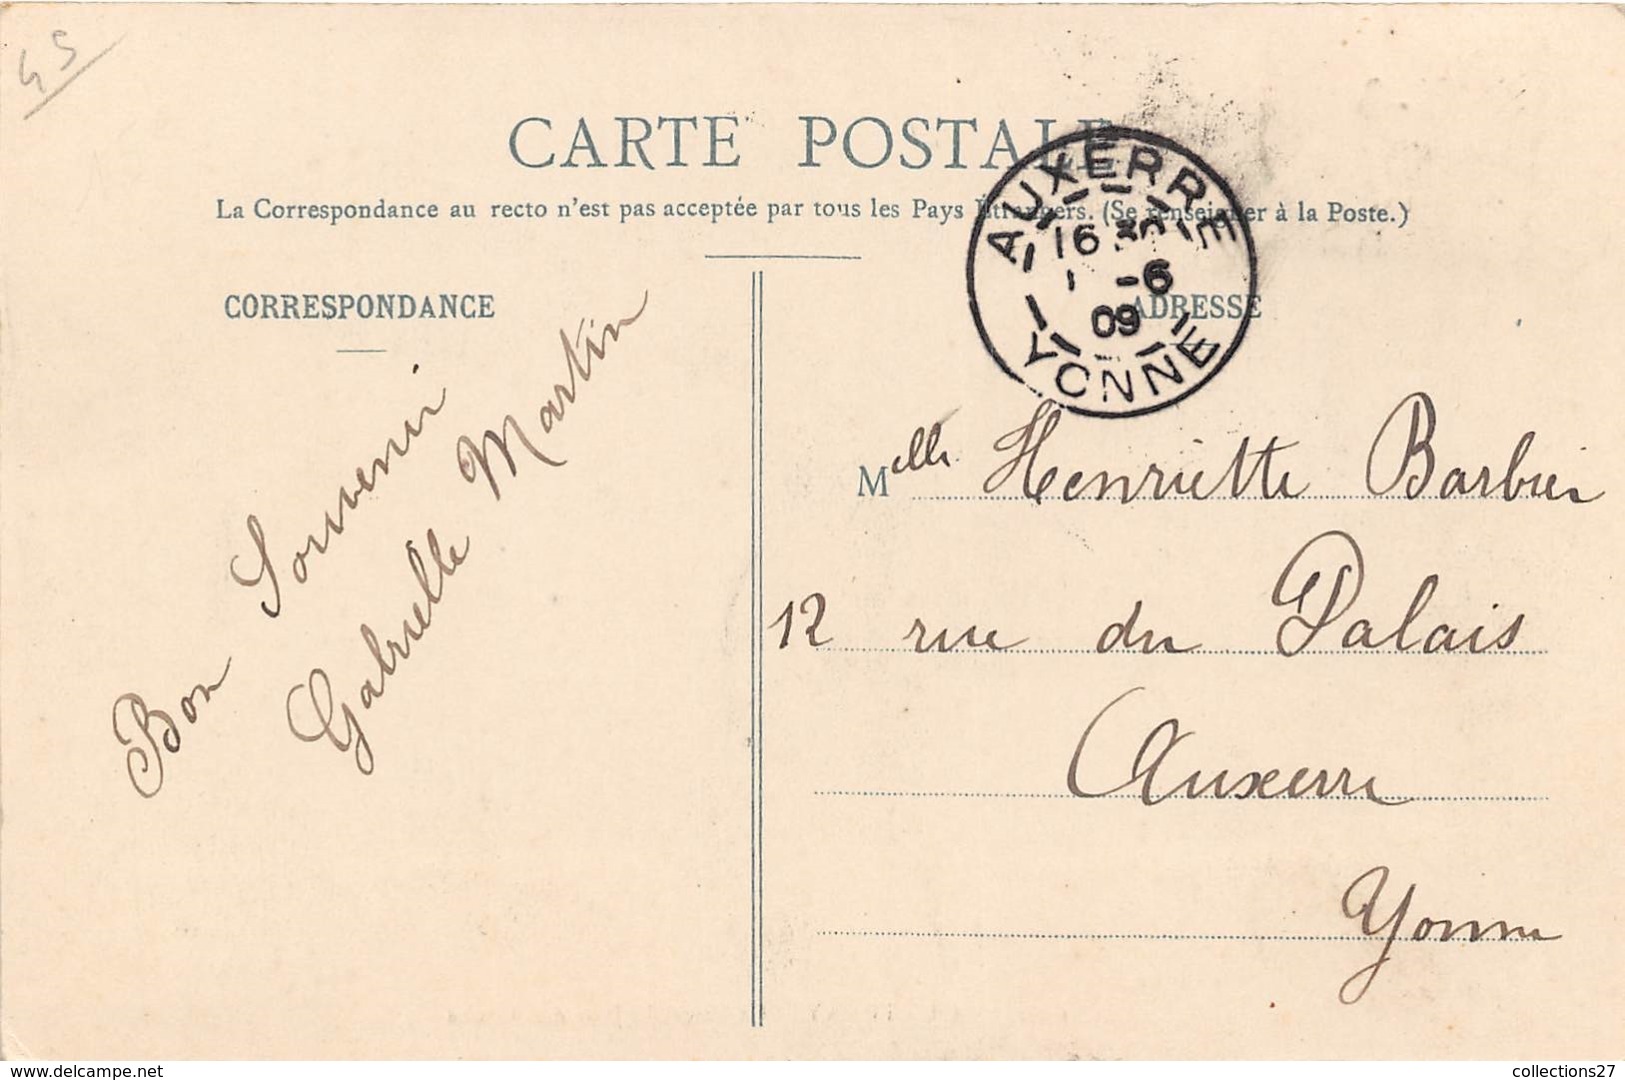 45
CARTE POSTALE
La Correspondance au recto n'est pas acceptée par tous les Pays Étrangers. (Se renseigner à la Poste.)
AUXERRE
16 30
1 -6
09
YONNE
CORRESPONDANCE
Bon Souvenir
Gabrielle Martin
ADRESSE
Melle Henriette Barbier
12 rue du Palais
Auxerre
Yonne
www.delcampe.net
collections27